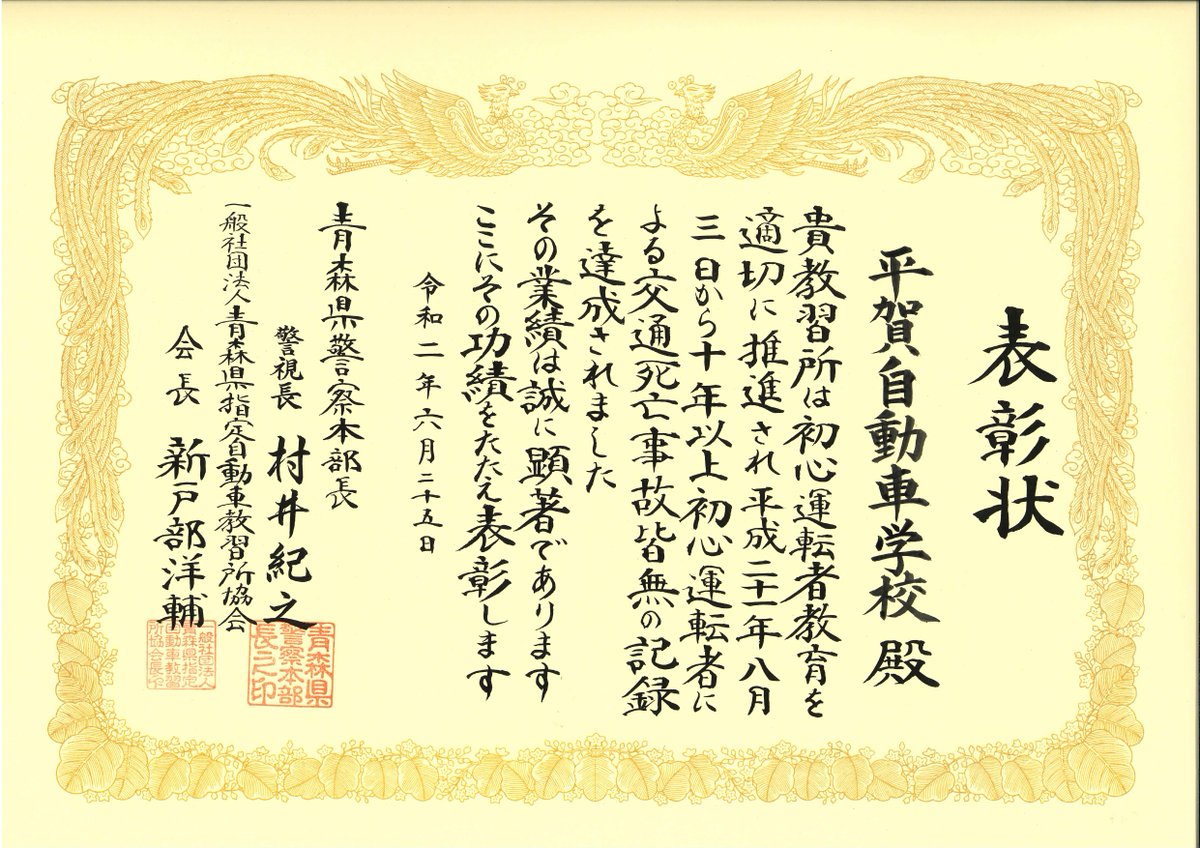 表彰状
平賀自動車学校 殿
貴教習所は初心運転者教育を
適切に推進され平成二十一年八月
三日から十年以上初心運転者に
よる交通死亡事故皆無の記録
を達成されました
その業績は誠に顕著であります
ここにその功績をたたえ表彰します
令和二年六月二十五日
青森県警察本部長
警視長 村井紀之
青森県
警察本部
長之印
一般社団法人青森県指定自動車教習所協会
会長 新戸部洋輔
一般社団法人
青森県指定
自動車教習
所協会長印